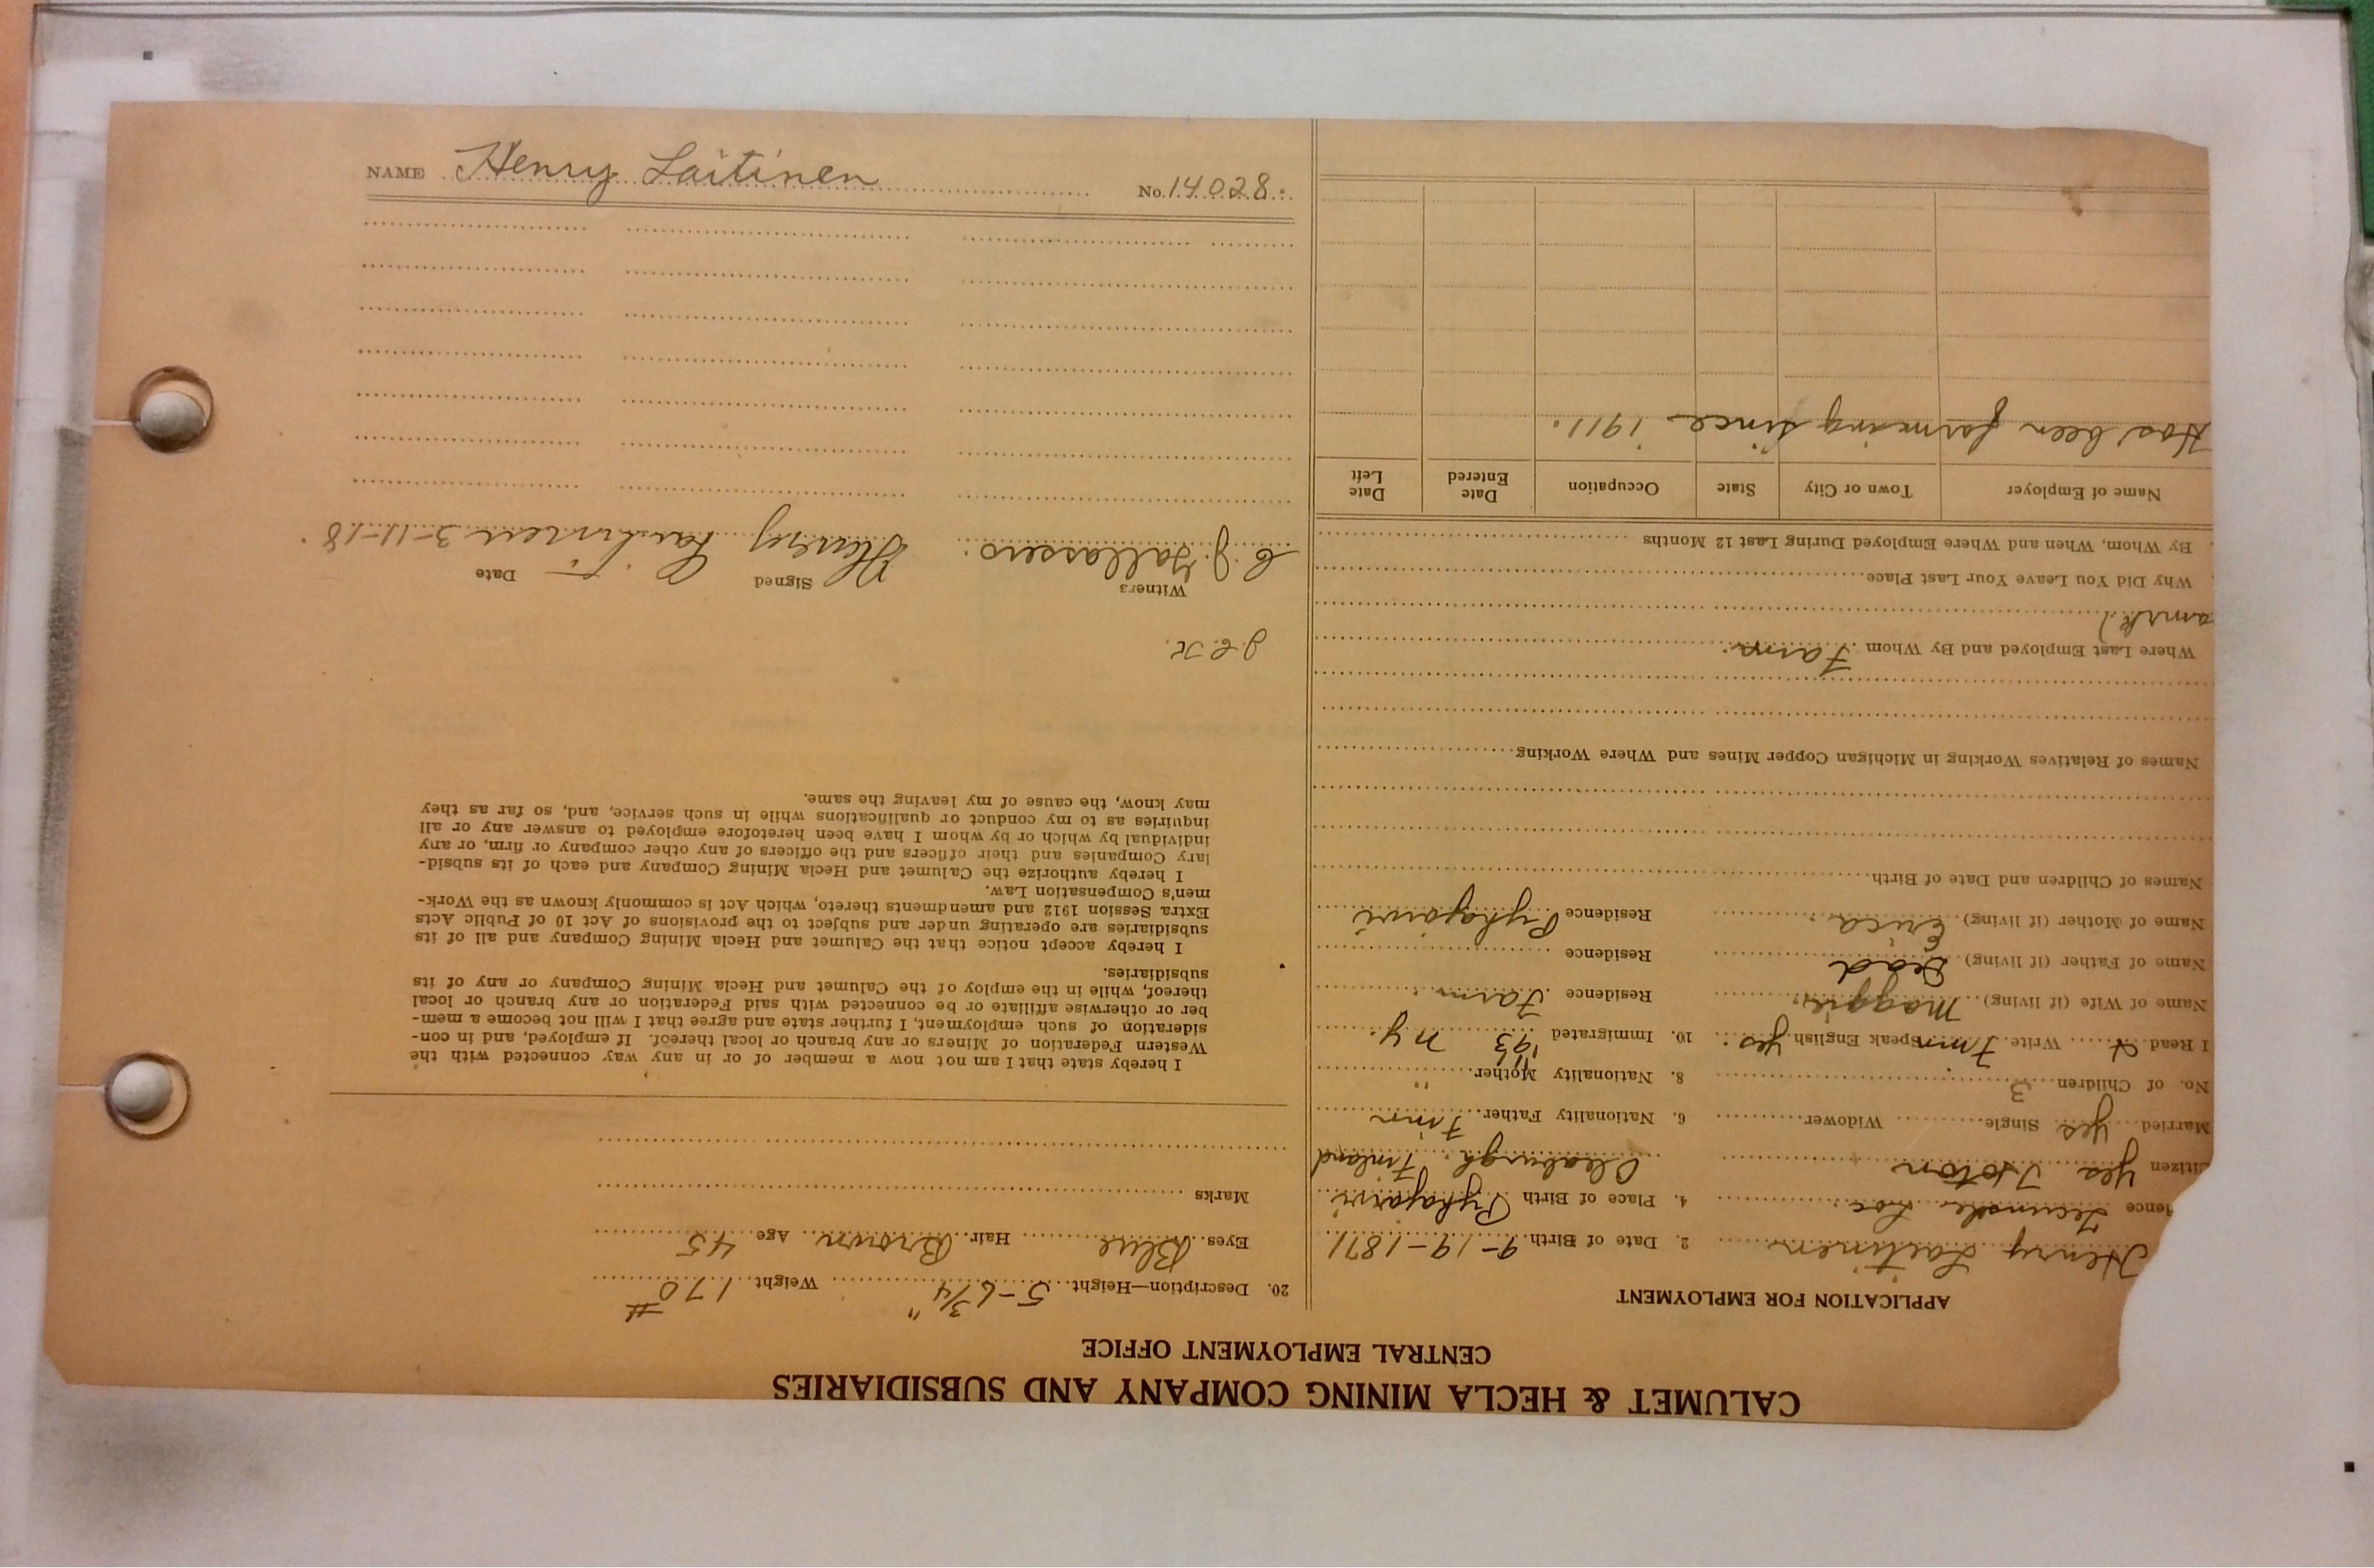 CALUMET & HECLA MINING COMPANY AND SUBSIDIARIES
CENTRAL EMPLOYMENT OFFICE
APPLICATION FOR EMPLOYMENT
Henry Laitinen 2. Date of Birth 9-19-1871
dence Tecumseh Loc. 4. Place of Birth Pyhajarvi
itizen Yes Hoton Oleaburgh. Finland
Married yes Single Widower 6. Nationality Father Finn
No. of Children 3 8. Nationality Mother "
I Read & Write Finn Speak English yes. 10. Immigrated '93 NY.
Name of Wife (if living) Maggie. Residence Farm.
Name of Father (if living) Dead Residence
Name of Mother (if living) Erica. Residence Pyhajarvi
Names of Children and Date of Birth
Names of Relatives Working in Michigan Copper Mines and Where Working
Where Last Employed and By Whom Farm.
Why Did You Leave Your Last Place
By Whom, When and Where Employed During Last 12 Months
Name of Employer Town or City State Occupation Date Entered Date Left
Has been farming since 1911.
20. Description—Height 5-6 3/4" Weight 170 #
Eyes Blue Hair Brown Age 45
Marks
I hereby state that I am not now a member of or in any way connected with the
Western Federation of Miners or any branch or local thereof. If employed, and in con-
sideration of such employment, I further state and agree that I will not become a mem-
ber or otherwise affiliate or be connected with said Federation or any branch or local
thereof, while in the employ of the Calumet and Hecla Mining Company or any of its
subsidiaries.
I hereby accept notice that the Calumet and Hecla Mining Company and all of its
subsidiaries are operating under and subject to the provisions of Act 10 of Public Acts
Extra Session 1912 and amendments thereto, which Act is commonly known as the Work-
men's Compensation Law.
I hereby authorize the Calumet and Hecla Mining Company and each of its subsid-
iary Companies and their officers and the officers of any other company or firm, or any
individual by which or by whom I have been heretofore employed to answer any or all
inquiries as to my conduct or qualifications while in such service, and, so far as they
may know, the cause of my leaving the same.
J.E.K.
Witness Signed Date
Henry Laitinen 3-11-18.
NAME Henry Laitinen No. 14028